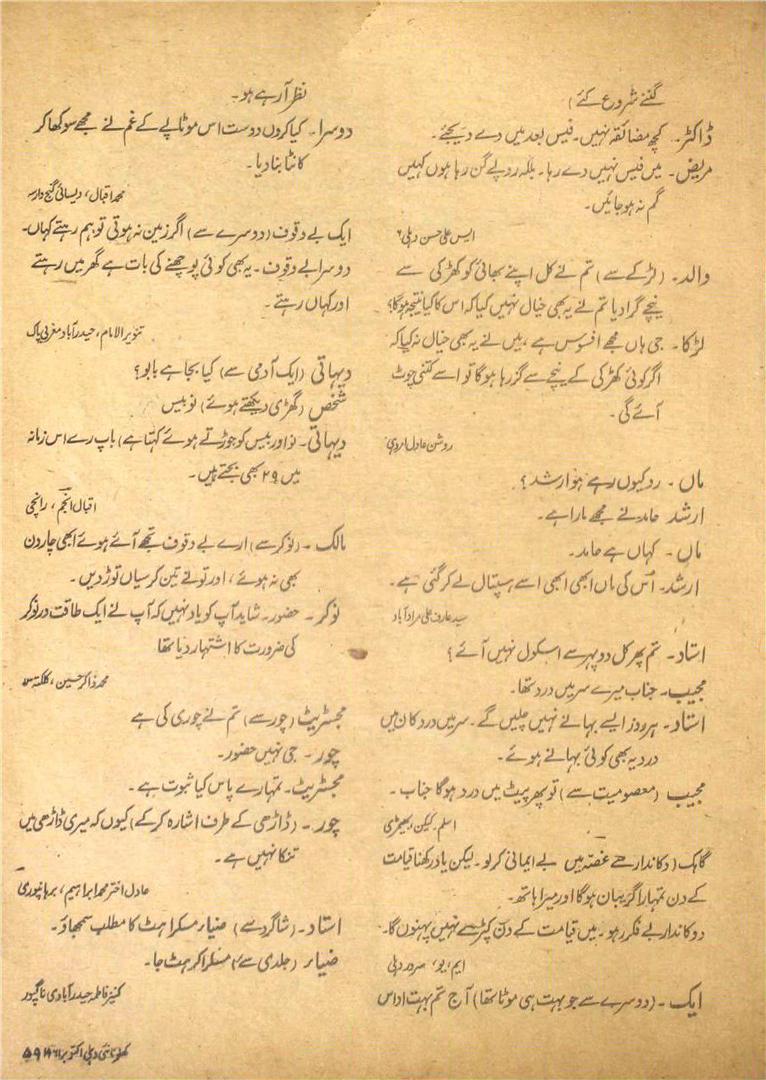 گننے شروع کئے)
ڈاکٹر۔ کچھ مضائقہ نہیں۔ فیس بعد میں دے دیجئے۔
مریض۔ میں فیس نہیں دے رہا۔ بلکہ روپے گن رہا ہوں کہیں
گم نہ ہو جائیں۔
ایس علی حسن دہلی ۶
والد۔ (لڑکے سے) تم نے کل اپنے بھائی کو کھڑکی سے
نیچے گرا دیا تم نے یہ بھی خیال نہیں کیا کہ اس کا کیا نتیجہ ہوگا؟
لڑکا۔ جی ہاں مجھے افسوس ہے، میں نے یہ بھی خیال نہ کیا کہ
اگر کوئی کھڑکی کے نیچے سے گزر رہا ہوگا تو اسے کتنی چوٹ
آئے گی۔
روشن عادل
ماں۔ رو کیوں رہے ہو ارشد؟
ارشد حامد نے مجھے مارا ہے۔
ماں۔ کہاں ہے حامد۔
ارشد۔ اُس کی ماں ابھی ابھی اسے ہسپتال لے کر گئی ہے۔
سید عارف علی مراد آباد
استاد۔ تم پھر کل دوپہر سے اسکول نہیں آئے؟
مجیب۔ جناب میرے سر میں درد تھا۔
استاد۔ ہر روز ایسے بہانے نہیں چلیں گے۔ سر میں درد کان میں
درد یہ بھی کوئی بہانے ہوئے۔
مجیب (معصومیت سے) تو پھر پیٹ میں درد ہوگا جناب۔
اسلم
گاہک (دکاندار سے غصّہ میں بے ایمانی کر لو۔ لیکن یاد رکھنا قیامت
کے دن تمہارا گریبان ہوگا اور میرا ہاتھ۔
دوکاندار بے فکر رہو۔ میں قیامت کے دن کپڑے نہیں پہنوں گا۔
ایم، یو، سرور دہلی
ایک۔ (دوسرے سے جو بہت ہی موٹا تھا) آج تم بہت اداس
نظر آ رہے ہو۔
دوسرا۔ کیا کروں دوست اس موٹاپے کے غم نے مجھے سوکھا کر
کانٹا بنا دیا۔
محمد اقبال، دیسائی گنج
ایک بے وقوف (دوسرے سے) اگر زمین نہ ہوتی تو ہم رہتے کہاں۔
دوسرا بے وقوف۔ یہ بھی کوئی پوچھنے کی بات ہے گھر میں رہتے
اور کہاں رہتے۔
تنویر الامام، حیدرآباد مغربی پاک
دیہاتی (ایک آدمی سے) کیا بجا ہے بابو؟
شخص (گھڑی دیکھتے ہوئے) نو بیس
دیہاتی۔ نو اور بیس کو جوڑتے ہوئے کہتا ہے) باپ رے اس زمانہ
میں ۲۹ بھی بجتے ہیں۔
اقبال انجم، رانچی
مالک۔ (نوکر سے) ارے بے وقوف تجھے آئے ہوئے ابھی چار دن
بھی نہ ہوئے، اور تو نے تین کرسیاں توڑ دیں۔
نوکر۔ حضور۔ شاید آپ کو یاد نہیں کہ آپ نے ایک طاقت ور نوکر
کی ضرورت کا اشتہار دیا تھا
محمد ذاکر حسین، کلکتہ
مجسٹریٹ (چور سے) تم نے چوری کی ہے
چور۔ جی نہیں حضور۔
مجسٹریٹ۔ تمہارے پاس کیا ثبوت ہے۔
چور۔ (ڈاڑھی کے طرف اشارہ کر کے) کیوں کہ میری ڈاڑھی میں
تنکا نہیں ہے۔
عادل اختر محمد ابراہیم، برہانپوری
استاد۔ (شاگرد سے) ضیاء مسکراہٹ کا مطلب سمجھاؤ۔
ضیاء (جلدی سے) مسکرا کر ہٹ جا۔
کنیز فاطمہ حیدرآبادی ناگپور
کھلونا نئی دہلی اکتوبر ۱۹۶۱ ۵۹